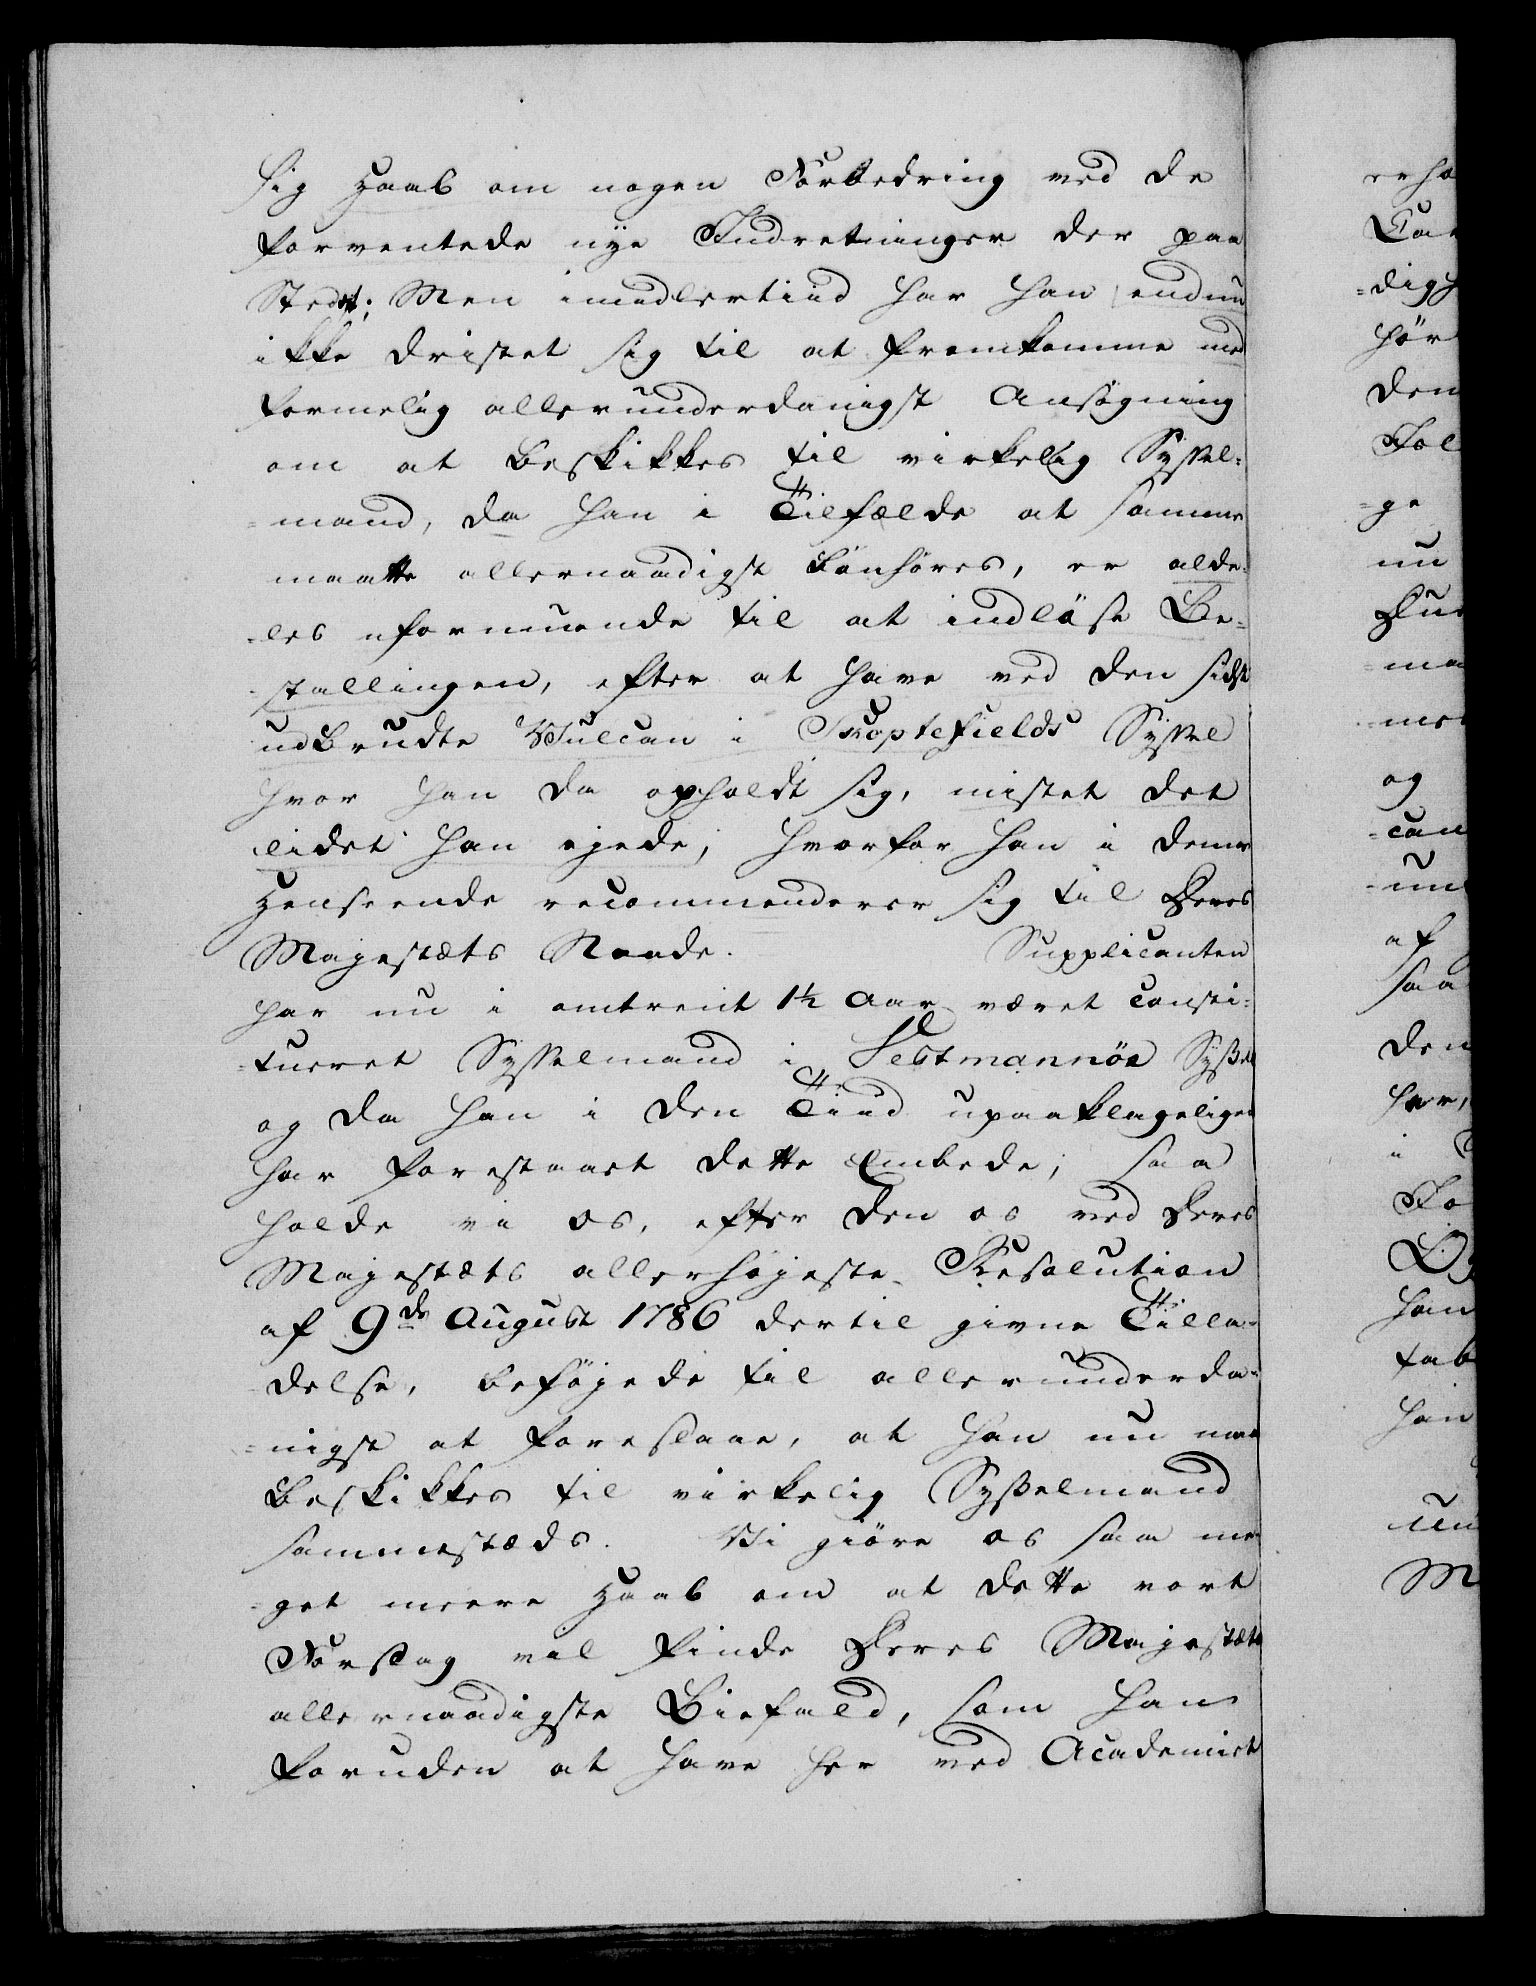 sig Haab om nogen Forbedring ved de
forventede nye Indretninger der paa
Stedet; Men imidlertiid har han endnu
ikke dristet sig til at fremkomme med
formelig allerunderdanigst Ansøgning
om at beskikkes til virkelig Syssel-
-mand, da han i Tilfælde at samme
maatte allernaadigst bönhöres, er alde-
-les uformuende til at indløse Be-
-stallingen, efter at have ved den sidst
udbrudte Vulcan i Skaptefields Syssel
hvor han da opholdt sig, mistet det
lidet han ejede, hvorfor han i denne
Henseende recommenderer sig til Deres
Majestæts Naade. Supplicanten
har nu i omtrent 1½ Aar været Consti-
-tueret Sysselmand i Vestmannöe Syssel
og da han i den Tiid upaaklageligen
har forestaaet dette Embede, saa
holde vi os, efter den os ved Deres
Majestæts allerhöjeste Resolution
af 9de August 1786 dertil givne Tilla-
-delse, beføjede til allerunderda-
-nigst at foreslaae, at han nu maa
beskikkes til virkelig Sysselmand
sammestæds. Vi giöre os saa me-
-get meere Haab om at dette vort
Forslag vil finde Deres Majestæts
allernaadigste Biefald, som han
foruden at have her ved Academiet